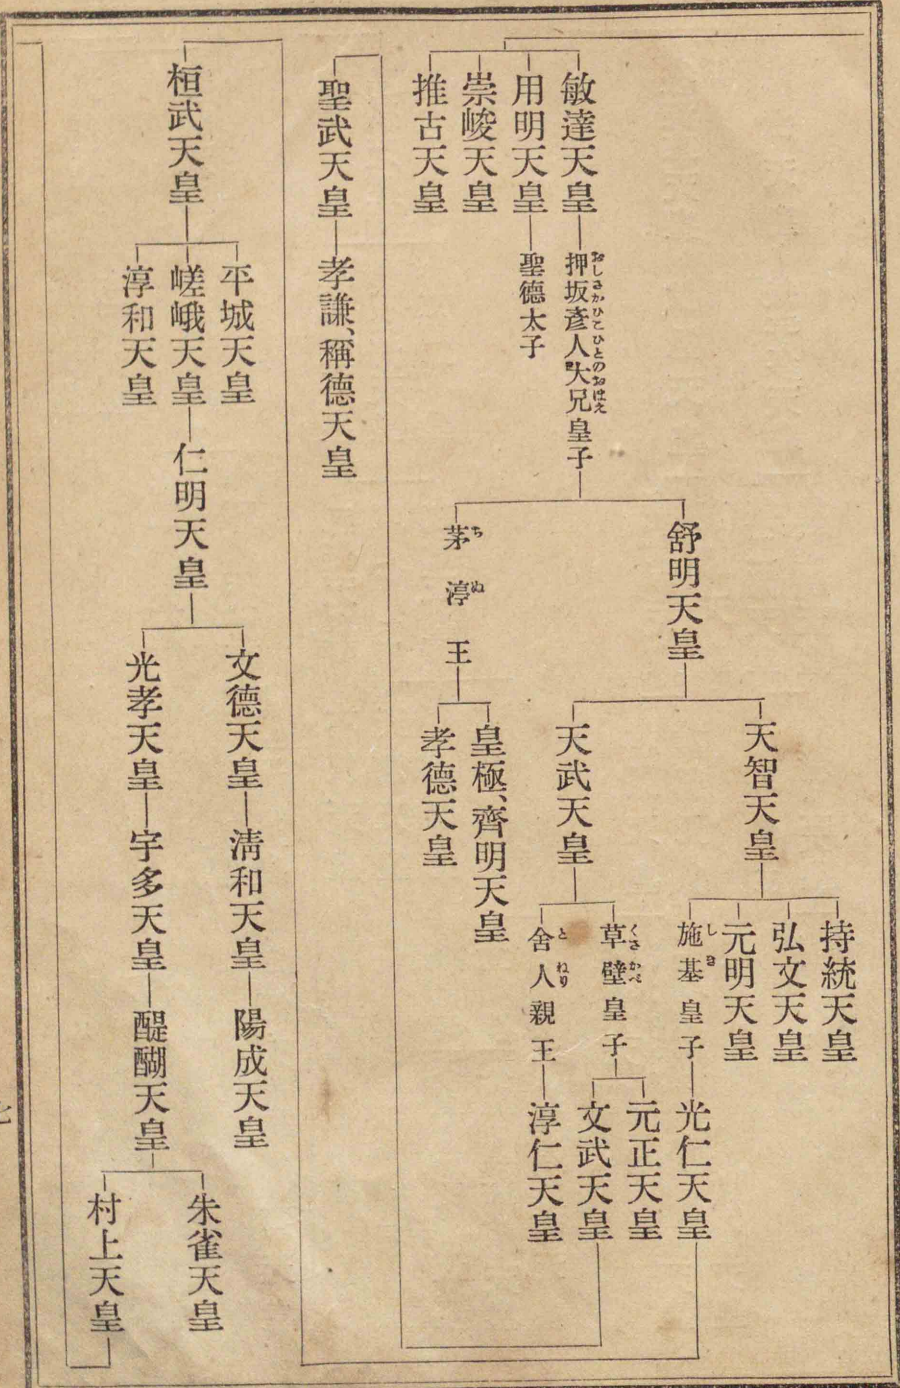 敏達天皇
押坂彥人大兄皇子
おしさかひこひとのおほえ
用明天皇
聖德太子
崇峻天皇
推古天皇
舒明天皇
茅渟王
ちぬ
天智天皇
天武天皇
皇極、齊明天皇
孝德天皇
持統天皇
弘文天皇
元明天皇
施基皇子
しき
光仁天皇
草壁皇子
くさかべ
元正天皇
文武天皇
舍人親王
とねり
淳仁天皇
聖武天皇
孝謙、稱德天皇
桓武天皇
平城天皇
嵯峨天皇
淳和天皇
仁明天皇
文德天皇
淸和天皇
陽成天皇
光孝天皇
宇多天皇
醍醐天皇
朱雀天皇
村上天皇
七